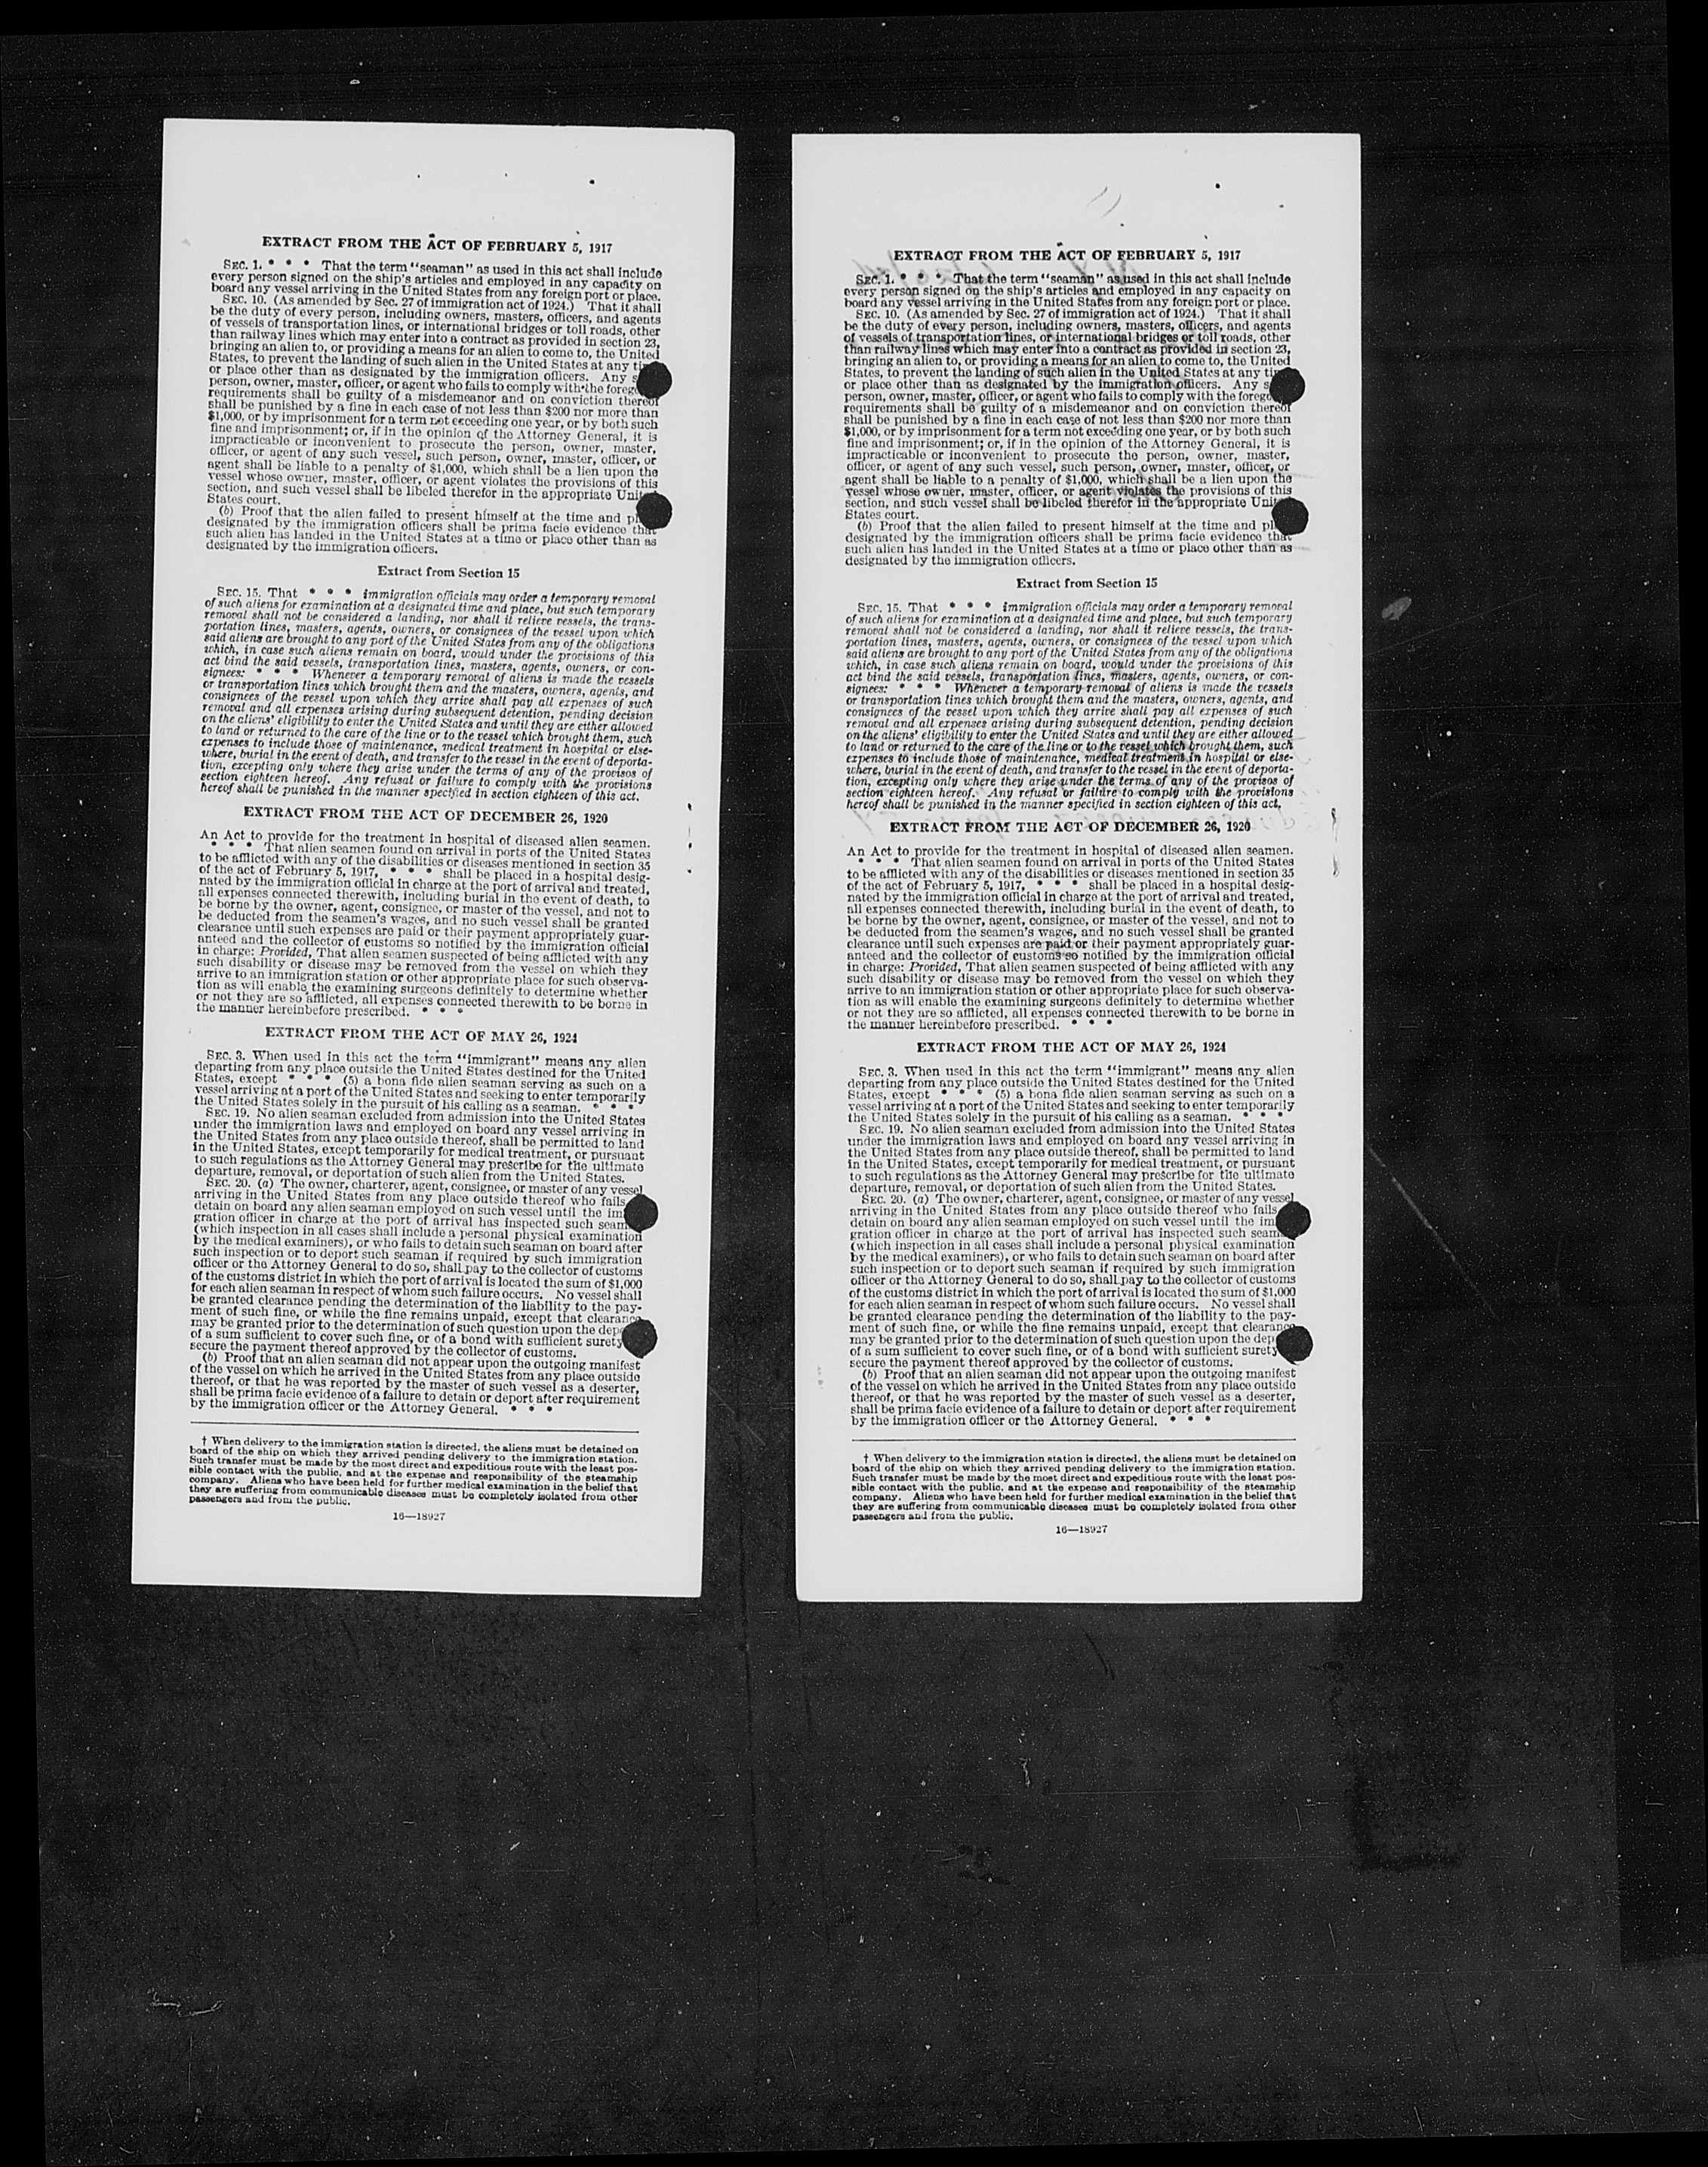 EXTRACT FROM THE ACT OF FEBRUARY 5, 1917
SEC. 1. * * * That the term "seaman" as used in this act shall include
every person signed on the ship's articles and employed in any capacity on
board any vessel arriving in the United States from any foreign port or place.
SEC. 10. (As amended by Sec. 27 of immigration act of 1924.) That it shall
be the duty of every person, including owners, masters, officers, and agents
of vessels of transportation lines, or international bridges or toll roads, other
than railway lines which may enter into a contract as provided in section 23,
bringing an alien to, or providing a means for an alien to come to, the United
States, to prevent the landing of such alien in the United States at any
or place other than as designated by the immigration officers. Any
person, owner, master, officer, or agent who fails to comply with the
requirements shall be guilty of a misdemeanor and on conviction thereof
shall be punished by a fine in each case of not less than $200 nor more than
$1,000, or by imprisonment for a term not exceeding one year, or by both such
fine and imprisonment; or, if in the opinion of the Attorney General, it is
impracticable or inconvenient to prosecute the person, owner, master,
officer, or agent of any such vessel, such person, owner, master, officer, or
agent shall be liable to a penalty of $1,000, which shall be a lien upon the
vessel whose owner, master, officer, or agent violates the provisions of this
section, and such vessel shall be libeled therefor in the appropriate
States court.
(b) Proof that the alien failed to present himself at the time and
designated by the immigration officers shall be prima facie evidence that
such alien has landed in the United States at a time or place other than as
designated by the immigration officers.
Extract from Section 15
SEC. 15. That * * * immigration officials may order a temporary removal
of such aliens for examination at a designated time and place, but such temporary
removal shall not be considered a landing, nor shall it relieve vessels, the trans-
portation lines, masters, agents, owners, or consignees of the vessel upon which
said aliens are brought to any port of the United States from any of the obligations
which, in case such aliens remain on board, would under the provisions of this
act bind the said vessels, transportation lines, masters, agents, owners, or con-
signees: * * * Whenever a temporary removal of aliens is made the vessels
or transportation lines which brought them and the masters, owners, agents, and
consignees of the vessel upon which they arrive shall pay all expenses of such
removal and all expenses arising during subsequent detention, pending decision
on the aliens' eligibility to enter the United States and until they are either allowed
to land or returned to the care of the line or to the vessel which brought them, such
expenses to include those of maintenance, medical treatment in hospital or else-
where, burial in the event of death, and transfer to the vessel in the event of deporta-
tion, excepting only where they arise under the terms of any of the provisos of
section eighteen hereof. Any refusal or failure to comply with the provisions
hereof shall be punished in the manner specified in section eighteen of this act.
EXTRACT FROM THE ACT OF DECEMBER 26, 1920
An Act to provide for the treatment in hospital of diseased alien seamen.
* * * That alien seamen found on arrival in ports of the United States
to be afflicted with any of the disabilities or diseases mentioned in section 35
of the act of February 5, 1917, * * * shall be placed in a hospital desig-
nated by the immigration official in charge at the port of arrival and treated,
all expenses connected therewith, including burial in the event of death, to
be borne by the owner, agent, consignee, or master of the vessel, and not to
be deducted from the seamen's wages, and no such vessel shall be granted
clearance until such expenses are paid or their payment appropriately guar-
anteed and the collector of customs so notified by the immigration official
in charge: Provided, That alien seamen suspected of being afflicted with any
such disability or disease may be removed from the vessel on which they
arrive to an immigration station or other appropriate place for such observa-
tion as will enable the examining surgeons definitely to determine whether
or not they are so afflicted, all expenses connected therewith to be borne in
the manner hereinbefore prescribed. * * *
EXTRACT FROM THE ACT OF MAY 26, 1924
SEC. 3. When used in this act the term "immigrant" means any alien
departing from any place outside the United States destined for the United
States, except * * * (5) a bona fide alien seaman serving as such on a
vessel arriving at a port of the United States and seeking to enter temporarily
the United States solely in the pursuit of his calling as a seaman. * * *
SEC. 19. No alien seaman excluded from admission into the United States
under the immigration laws and employed on board any vessel arriving in
the United States from any place outside thereof, shall be permitted to land
in the United States, except temporarily for medical treatment, or pursuant
to such regulations as the Attorney General may prescribe for the ultimate
departure, removal, or deportation of such alien from the United States.
SEC. 20. (a) The owner, charterer, agent, consignee, or master of any vessel
arriving in the United States from any place outside thereof who fails
detain on board any alien seaman employed on such vessel until the im
gration officer in charge at the port of arrival has inspected such
(which inspection in all cases shall include a personal physical examination
by the medical examiners), or who fails to detain such seaman on board after
such inspection or to deport such seaman if required by such immigration
officer or the Attorney General to do so, shall pay to the collector of customs
of the customs district in which the port of arrival is located the sum of $1,000
for each alien seaman in respect of whom such failure occurs. No vessel shall
be granted clearance pending the determination of the liability to the pay-
ment of such fine, or while the fine remains unpaid, except that clearance
may be granted prior to the determination of such question upon the
of a sum sufficient to cover such fine, or of a bond with sufficient surety
secure the payment thereof approved by the collector of customs.
(b) Proof that an alien seaman did not appear upon the outgoing manifest
of the vessel on which he arrived in the United States from any place outside
thereof, or that he was reported by the master of such vessel as a deserter,
shall be prima facie evidence of a failure to detain or deport after requirement
by the immigration officer or the Attorney General. * * *
† When delivery to the immigration station is directed, the aliens must be detained on
board of the ship on which they arrived pending delivery to the immigration station.
Such transfer must be made by the most direct and expeditious route with the least pos-
sible contact with the public, and at the expense and responsibility of the steamship
company. Aliens who have been held for further medical examination in the belief that
they are suffering from communicable diseases must be completely isolated from other
passengers and from the public.
16—18927
EXTRACT FROM THE ACT OF FEBRUARY 5, 1917
SEC. 1. * * * That the term "seaman" as used in this act shall include
every person signed on the ship's articles and employed in any capacity on
board any vessel arriving in the United States from any foreign port or place.
SEC. 10. (As amended by Sec. 27 of immigration act of 1924.) That it shall
be the duty of every person, including owners, masters, officers, and agents
of vessels of transportation lines, or international bridges or toll roads, other
than railway lines which may enter into a contract as provided in section 23,
bringing an alien to, or providing a means for an alien to come to, the United
States, to prevent the landing of such alien in the United States at any
or place other than as designated by the immigration officers. Any
person, owner, master, officer, or agent who fails to comply with the
requirements shall be guilty of a misdemeanor and on conviction thereof
shall be punished by a fine in each case of not less than $200 nor more than
$1,000, or by imprisonment for a term not exceeding one year, or by both such
fine and imprisonment; or, if in the opinion of the Attorney General, it is
impracticable or inconvenient to prosecute the person, owner, master,
officer, or agent of any such vessel, such person, owner, master, officer, or
agent shall be liable to a penalty of $1,000, which shall be a lien upon the
vessel whose owner, master, officer, or agent violates the provisions of this
section, and such vessel shall be libeled therefor in the appropriate
States court.
(b) Proof that the alien failed to present himself at the time and
designated by the immigration officers shall be prima facie evidence that
such alien has landed in the United States at a time or place other than as
designated by the immigration officers.
Extract from Section 15
SEC. 15. That * * * immigration officials may order a temporary removal
of such aliens for examination at a designated time and place, but such temporary
removal shall not be considered a landing, nor shall it relieve vessels, the trans-
portation lines, masters, agents, owners, or consignees of the vessel upon which
said aliens are brought to any port of the United States from any of the obligations
which, in case such aliens remain on board, would under the provisions of this
act bind the said vessels, transportation lines, masters, agents, owners, or con-
signees: * * * Whenever a temporary removal of aliens is made the vessels
or transportation lines which brought them and the masters, owners, agents, and
consignees of the vessel upon which they arrive shall pay all expenses of such
removal and all expenses arising during subsequent detention, pending decision
on the aliens' eligibility to enter the United States and until they are either allowed
to land or returned to the care of the line or to the vessel which brought them, such
expenses to include those of maintenance, medical treatment in hospital or else-
where, burial in the event of death, and transfer to the vessel in the event of deporta-
tion, excepting only where they arise under the terms of any of the provisos of
section eighteen hereof. Any refusal or failure to comply with the provisions
hereof shall be punished in the manner specified in section eighteen of this act.
EXTRACT FROM THE ACT OF DECEMBER 26, 1920
An Act to provide for the treatment in hospital of diseased alien seamen.
* * * That alien seamen found on arrival in ports of the United States
to be afflicted with any of the disabilities or diseases mentioned in section 35
of the act of February 5, 1917, * * * shall be placed in a hospital desig-
nated by the immigration official in charge at the port of arrival and treated,
all expenses connected therewith, including burial in the event of death, to
be borne by the owner, agent, consignee, or master of the vessel, and not to
be deducted from the seamen's wages, and no such vessel shall be granted
clearance until such expenses are paid or their payment appropriately guar-
anteed and the collector of customs so notified by the immigration official
in charge: Provided, That alien seamen suspected of being afflicted with any
such disability or disease may be removed from the vessel on which they
arrive to an immigration station or other appropriate place for such observa-
tion as will enable the examining surgeons definitely to determine whether
or not they are so afflicted, all expenses connected therewith to be borne in
the manner hereinbefore prescribed. * * *
EXTRACT FROM THE ACT OF MAY 26, 1924
SEC. 3. When used in this act the term "immigrant" means any alien
departing from any place outside the United States destined for the United
States, except * * * (5) a bona fide alien seaman serving as such on a
vessel arriving at a port of the United States and seeking to enter temporarily
the United States solely in the pursuit of his calling as a seaman. * * *
SEC. 19. No alien seaman excluded from admission into the United States
under the immigration laws and employed on board any vessel arriving in
the United States from any place outside thereof, shall be permitted to land
in the United States, except temporarily for medical treatment, or pursuant
to such regulations as the Attorney General may prescribe for the ultimate
departure, removal, or deportation of such alien from the United States.
SEC. 20. (a) The owner, charterer, agent, consignee, or master of any vessel
arriving in the United States from any place outside thereof who fails
detain on board any alien seaman employed on such vessel until the im
gration officer in charge at the port of arrival has inspected such
(which inspection in all cases shall include a personal physical examination
by the medical examiners), or who fails to detain such seaman on board after
such inspection or to deport such seaman if required by such immigration
officer or the Attorney General to do so, shall pay to the collector of customs
of the customs district in which the port of arrival is located the sum of $1,000
for each alien seaman in respect of whom such failure occurs. No vessel shall
be granted clearance pending the determination of the liability to the pay-
ment of such fine, or while the fine remains unpaid, except that clearance
may be granted prior to the determination of such question upon the
of a sum sufficient to cover such fine, or of a bond with sufficient surety
secure the payment thereof approved by the collector of customs.
(b) Proof that an alien seaman did not appear upon the outgoing manifest
of the vessel on which he arrived in the United States from any place outside
thereof, or that he was reported by the master of such vessel as a deserter,
shall be prima facie evidence of a failure to detain or deport after requirement
by the immigration officer or the Attorney General. * * *
† When delivery to the immigration station is directed, the aliens must be detained on
board of the ship on which they arrived pending delivery to the immigration station.
Such transfer must be made by the most direct and expeditious route with the least pos-
sible contact with the public, and at the expense and responsibility of the steamship
company. Aliens who have been held for further medical examination in the belief that
they are suffering from communicable diseases must be completely isolated from other
passengers and from the public.
16—18927